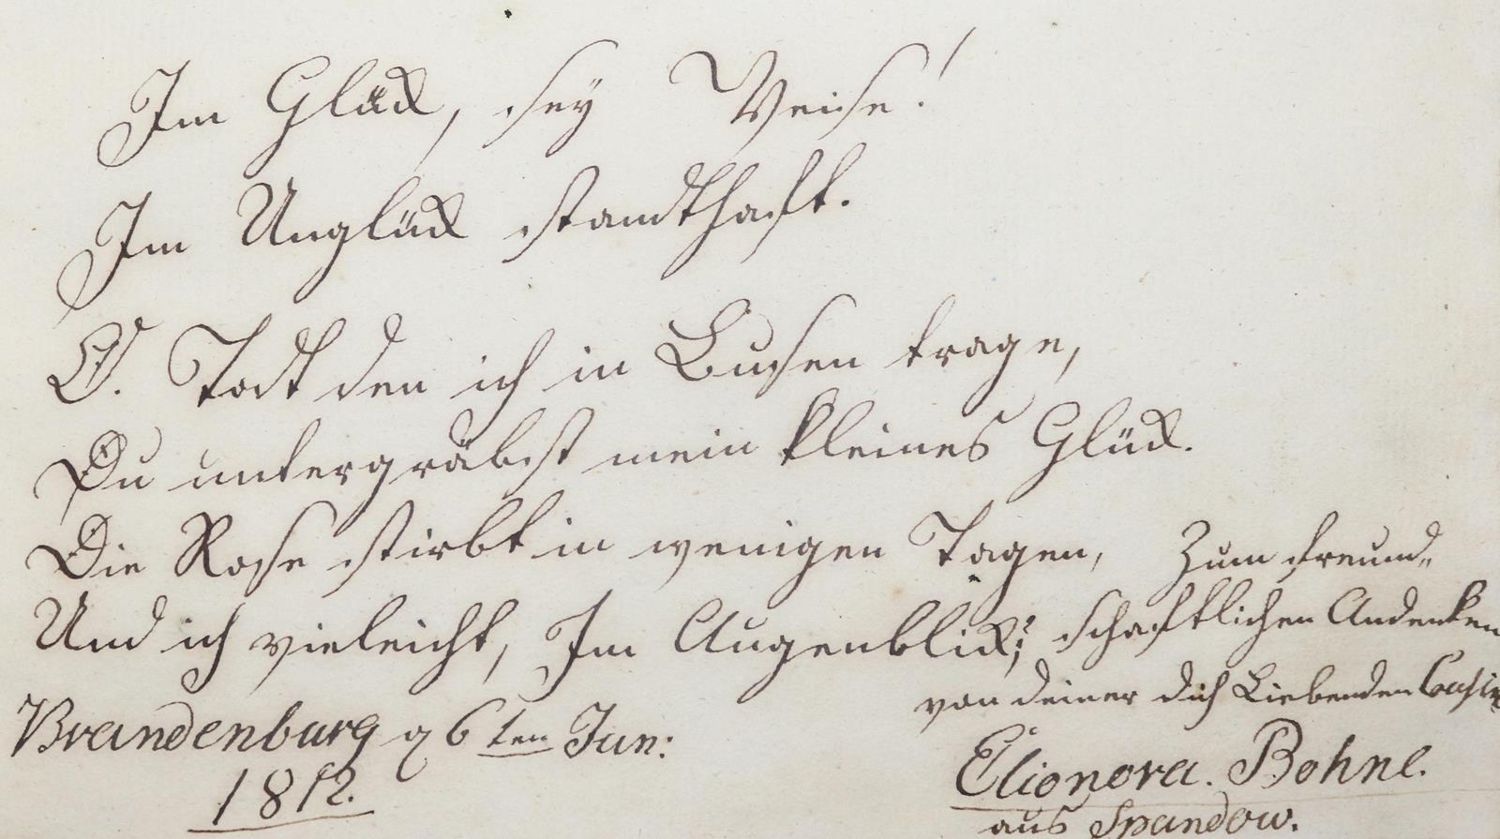 Im Glück, sey Weise!
Im Unglück standthaft.
O. Todt den ich in Busen trage,
Du untergräbst mein kleines Glück.
Die Rose stirbt in wenigen Tagen,
Und ich vieleicht, Im Augenblick;
Zum freund„
schaftlichen Andenken
von deiner dich Liebenden Cousin
Elionora. Bohne.
aus Spandow.
Brandenburg 6ten Jun:
1812.